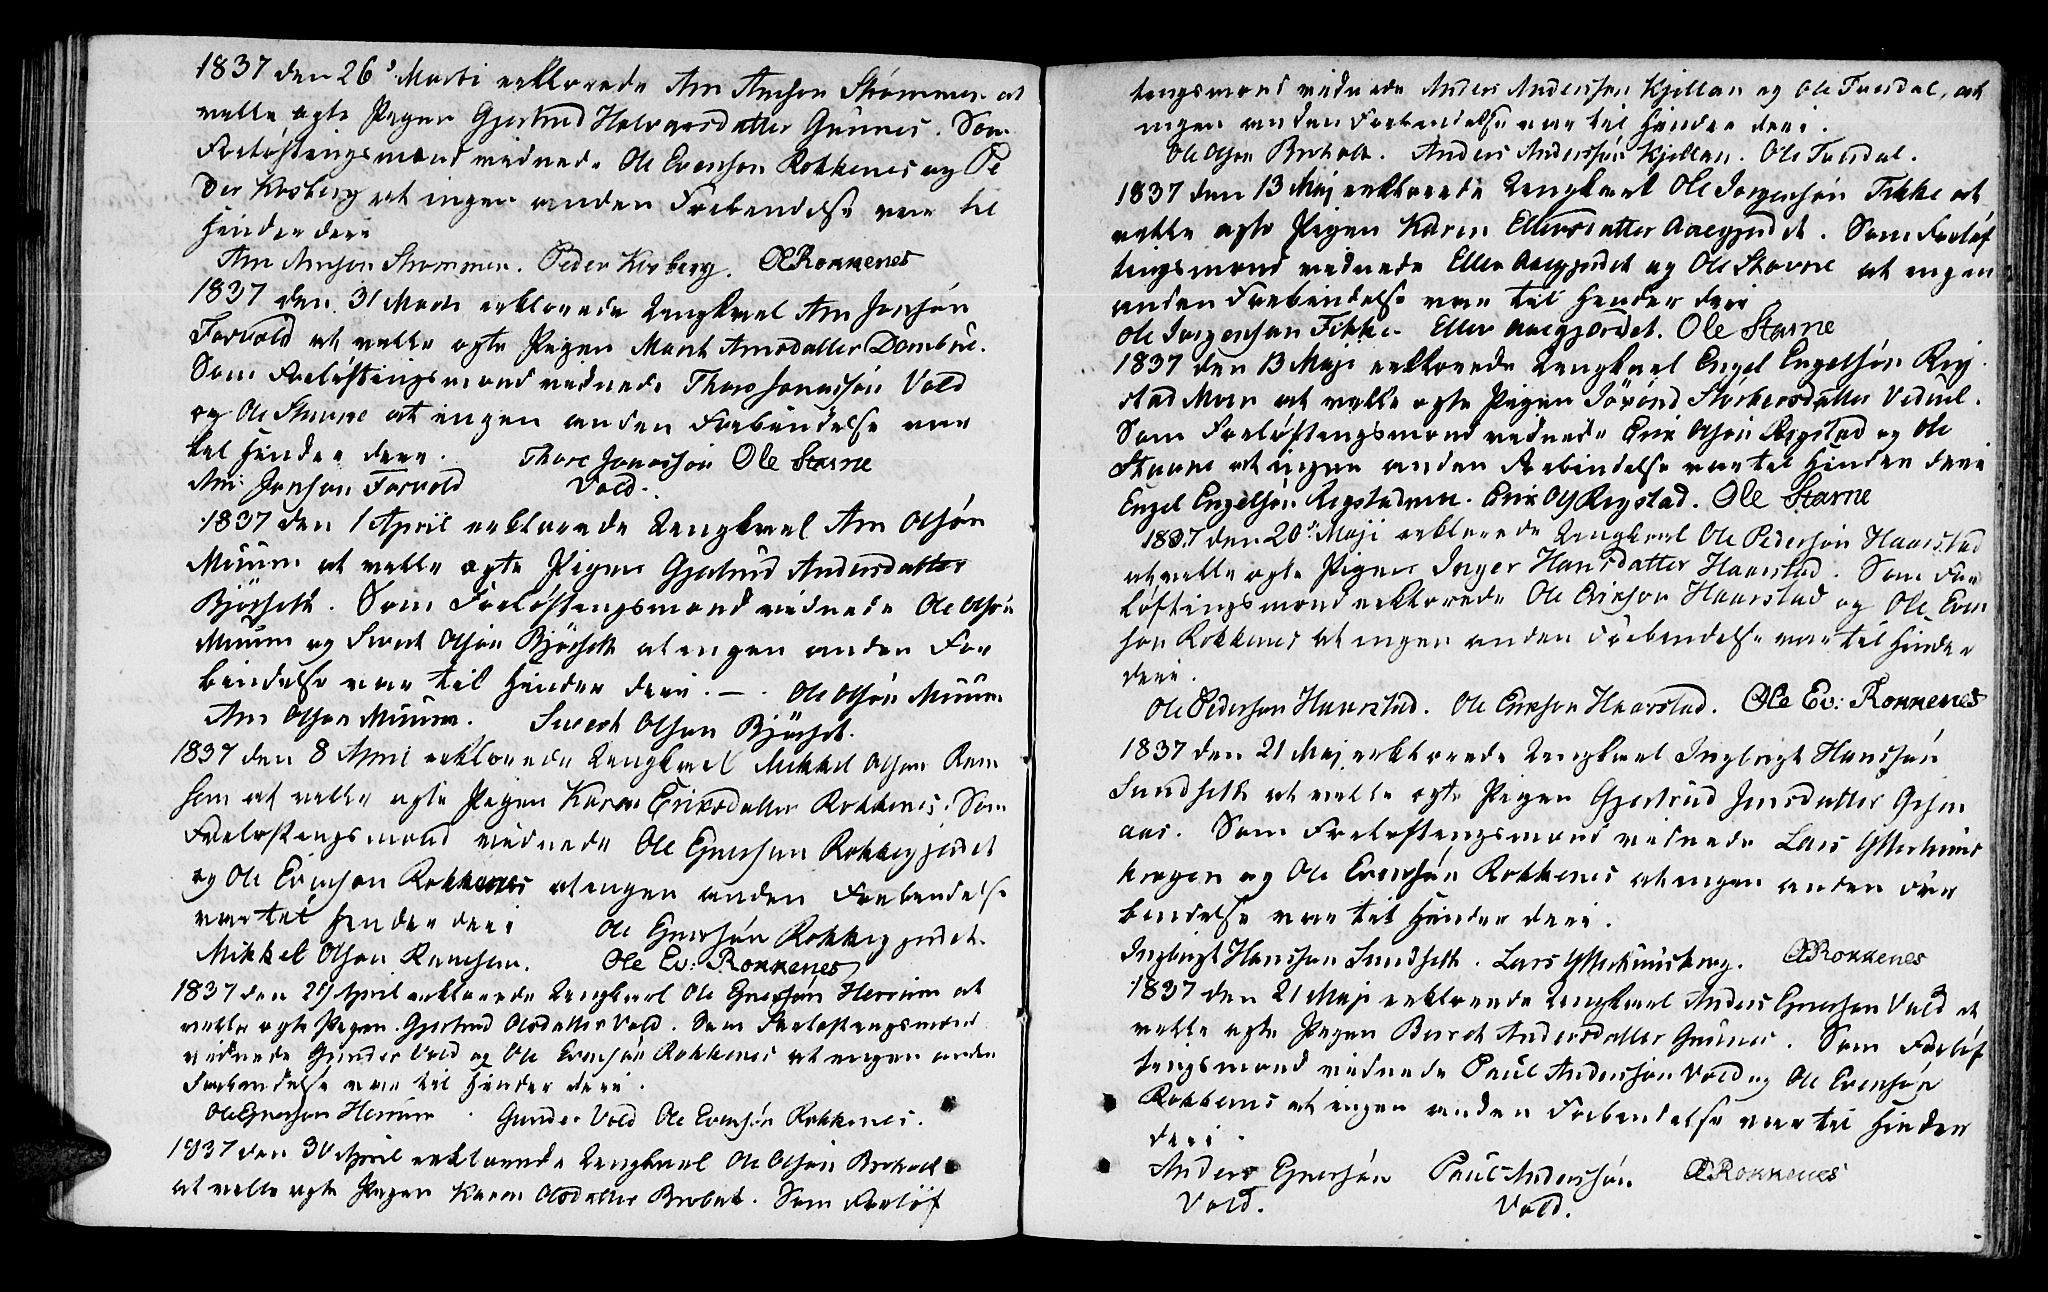 1837 den 26d Marti erklærede Arn Arnson Strømmen at
ville ægte Pigen Gjertrud Halvorsdatter Gunnes. Som
Forløftningsmænd vidnede Ole Evenson Rokkenes og Pe
der Kosberg at ingen anden Forbindelse var til
Hinder deri
Arn Arnson Strømmen. Peder Kosberg. OERokkenes
1837 den 31 Marts erklærede Ungkarl Arn Jonsøn
Forvold at ville ægte Pigen Marit Arnsdatter Dombue.
Som Forløftingsmænd vidnede Thore Jonassøn Vold
og Ole Stavne at ingen anden Forbindelse var
til Hinder deri. Thore Jonassøn Ole Stavne
Arn Jonson Forvold Vold.
1837 den 1 April erklærede Ungkarl Arn Olsøn
Muum at ville ægte Pigen Gjertrud Andersdatter
Bjørseth. Som Forløftingsmænd vidnede Ole Olsøn
Muum og Sivert Olsøn Bjørseth at ingen anden For
bindelse var til Hinder deri. —. Ole Olsøn Muum
Arn Olsøn Muum. Sivert Olsøn Bjørset.
1837 den 8 April erklærede Ungkarl Mikkel Olson Ram
sem at ville ægte Pigen Karen Eriksdatter Rokkenes. Som
Forløftingsmænd vidnede Ole Enersøn Rokkegjerdet
og Ole Evenson Rokkenes at ingen anden Forbindelse
var til Hinder deri Ole Enersøn Rokkegjerdet.
Mikkel Olson Ramsem. Ole Ev: Rokkenes
1837 den 29 April erklærede Ungkarl Ole Enersøn Herrim at
ville ægte Pigen Gjertrud Olsdatter Vold. Som Forløftingsmænd
vidnede Gunder Vold og Ole Evensøn Rokkenes at ingen anden
Forbindelse var til Hinder deri.
Ole Enerson Herrim. Gunder Vold Ole Evensøn Rokkenes.
1837 den 30 April erklærede Ungkarl Ole Olson Broholt
at ville ægte Pigen Karen Olsdatter Broholt. Som Forløf
tingsmænd vidnede Anders Anderssøn Kjellan og Ole Tuesdal, at
ingen anden Forbindelse var til Hinder deri.
Ole Olson Broholt. Anders Anderssøn Kjellan. Ole Tuesdal.
1837 den 13 Maj erklærede Ungkarl Ole Jørgensøn Fikke at
ville ægte Pigen Karen Ellevsdatter Aaegjerdet. Som Forløf
tingsmænd vidnede Ellev Aaegjerdet og Ole Stavne at ingen
anden Forbindelse var til Hinder deri
Ole Jørgensøn Fikke. Ellev Aaegjerdet. Ole Stavne
1837 den 13 Maji erklærede Ungkarl Engel Engelsøn Rig
stad Moen at ville ægte Pigen Jørønd Størkersdatter Vedul.
Som Forløftingsmænd vidnede Erik Olsøn Rigstad og Ole
Stavne at ingen anden Forbindelse var til Hinder deri
Engel Engelsøn Rigstadmoe. Erik Ols Rigstad. Ole Stavne
1837 den 20d Maji erklærede Ungkarl Ole Pedersøn Haarstad
at ville ægte Pigen Inger Hansdatter Haarstad. Som For
løftingsmænd erklærede Ole Erikson Haarstad og Ole Even
søn Rokkenes at ingen anden Forbindelse var til Hinder
deri.
Ole Pederson Haarstad. Ole Erikson Haarstad. Ole Ev: Rokkenes
1837 den 21 Maj erklærede Ungkarl Ingbrigt Hanssøn
Sundseth at ville ægte Pigen Gjertrud Jensdatter Gosen
aas. Som Forløftingsmænd vidnede Lars Ytterhuus
haugen og Ole Evensøn Rokkenes at ingen anden For
bindelse var til Hinder deri.
Ingbrigt Hansson Sundseth. Lars Ytterhuushaug. OERokkenes
1837 den 21 Maji erklærede Ungkarl Anders Enersøn Vold at
ville ægte Pigen Bereth Andersdatter Gunnes. Som Forløf
tingsmænd vidnede Paul Anderssøn Vold og Ole Evensøn
Rokkenes at ingen anden Forbindelse var til Hinder
deri.
Anders Enersøn Paul Anderssøn OERokkenes
Vold. Vold.